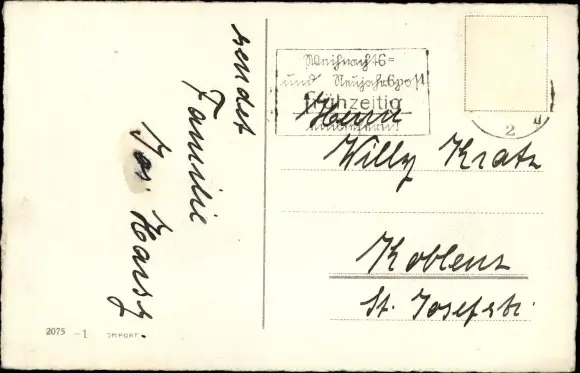 sendet
Familie
Jos. Harig.
Weihnachts=
und Neujahrspost
Frühzeitig
einliefern!
2
Herrn
Willy Kratz
Koblenz
St. Josefstr.
2075 -1 IMPORT